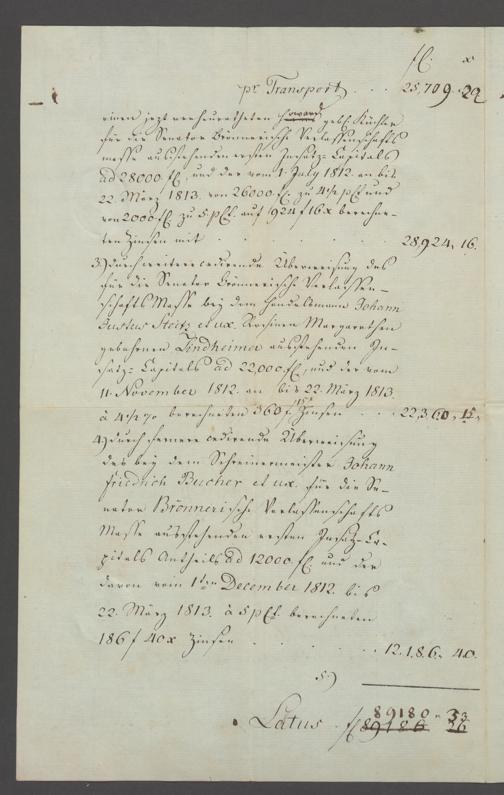 fl. x
pr Transport . . . 25,709 " 22
einen jezt verheuratheten Howard gebh. Küchler
für die Senator Brönnerische Verlassenschafts
masse ausstehenden ersten Insatz-Capitals
ad 28000 fl., und der vom 1. July 1812. an bis
22. März 1813. von 26000 fl. zu 4½ pCt und
von 2000 fl. zu 5 pCt. auf 924 f 16 x berechne-
ten Zinsen mit . . . . 28,924, 16.
3.) durch weitere cedirende Überweisung des
für die Senator Brönnerische Verlassen-
schafts Masse bey dem Handelsmann Johann
Justus Steitz et ux. Rosinen Margarethen
gebohrnen Lindheimer ausstehenden In-
satz-Capitals ad 22,000 fl., und der vom
11. November 1812. an bis 22. März 1813.
à 4½ % berechneten 360 f 15 x Zinsen . . 22,360, 15,
4.) durch fernere cedirende Überweisung
des bey dem Schreinermeister Johann
Friedrich Bucher et ux. für die Se-
nator Brönnerische Verlassenschafts
Masse ausstehenden ersten Insatz-Ca-
pitals Antheils ad 12000 fl. und der
davon vom 1ten December 1812. bis
22. März 1813. à 5 pCt. berechneten
186 f 40 x Zinsen . . . . 12,186, 40.
5.)
89180 " 33
Latus fl. 89186 36